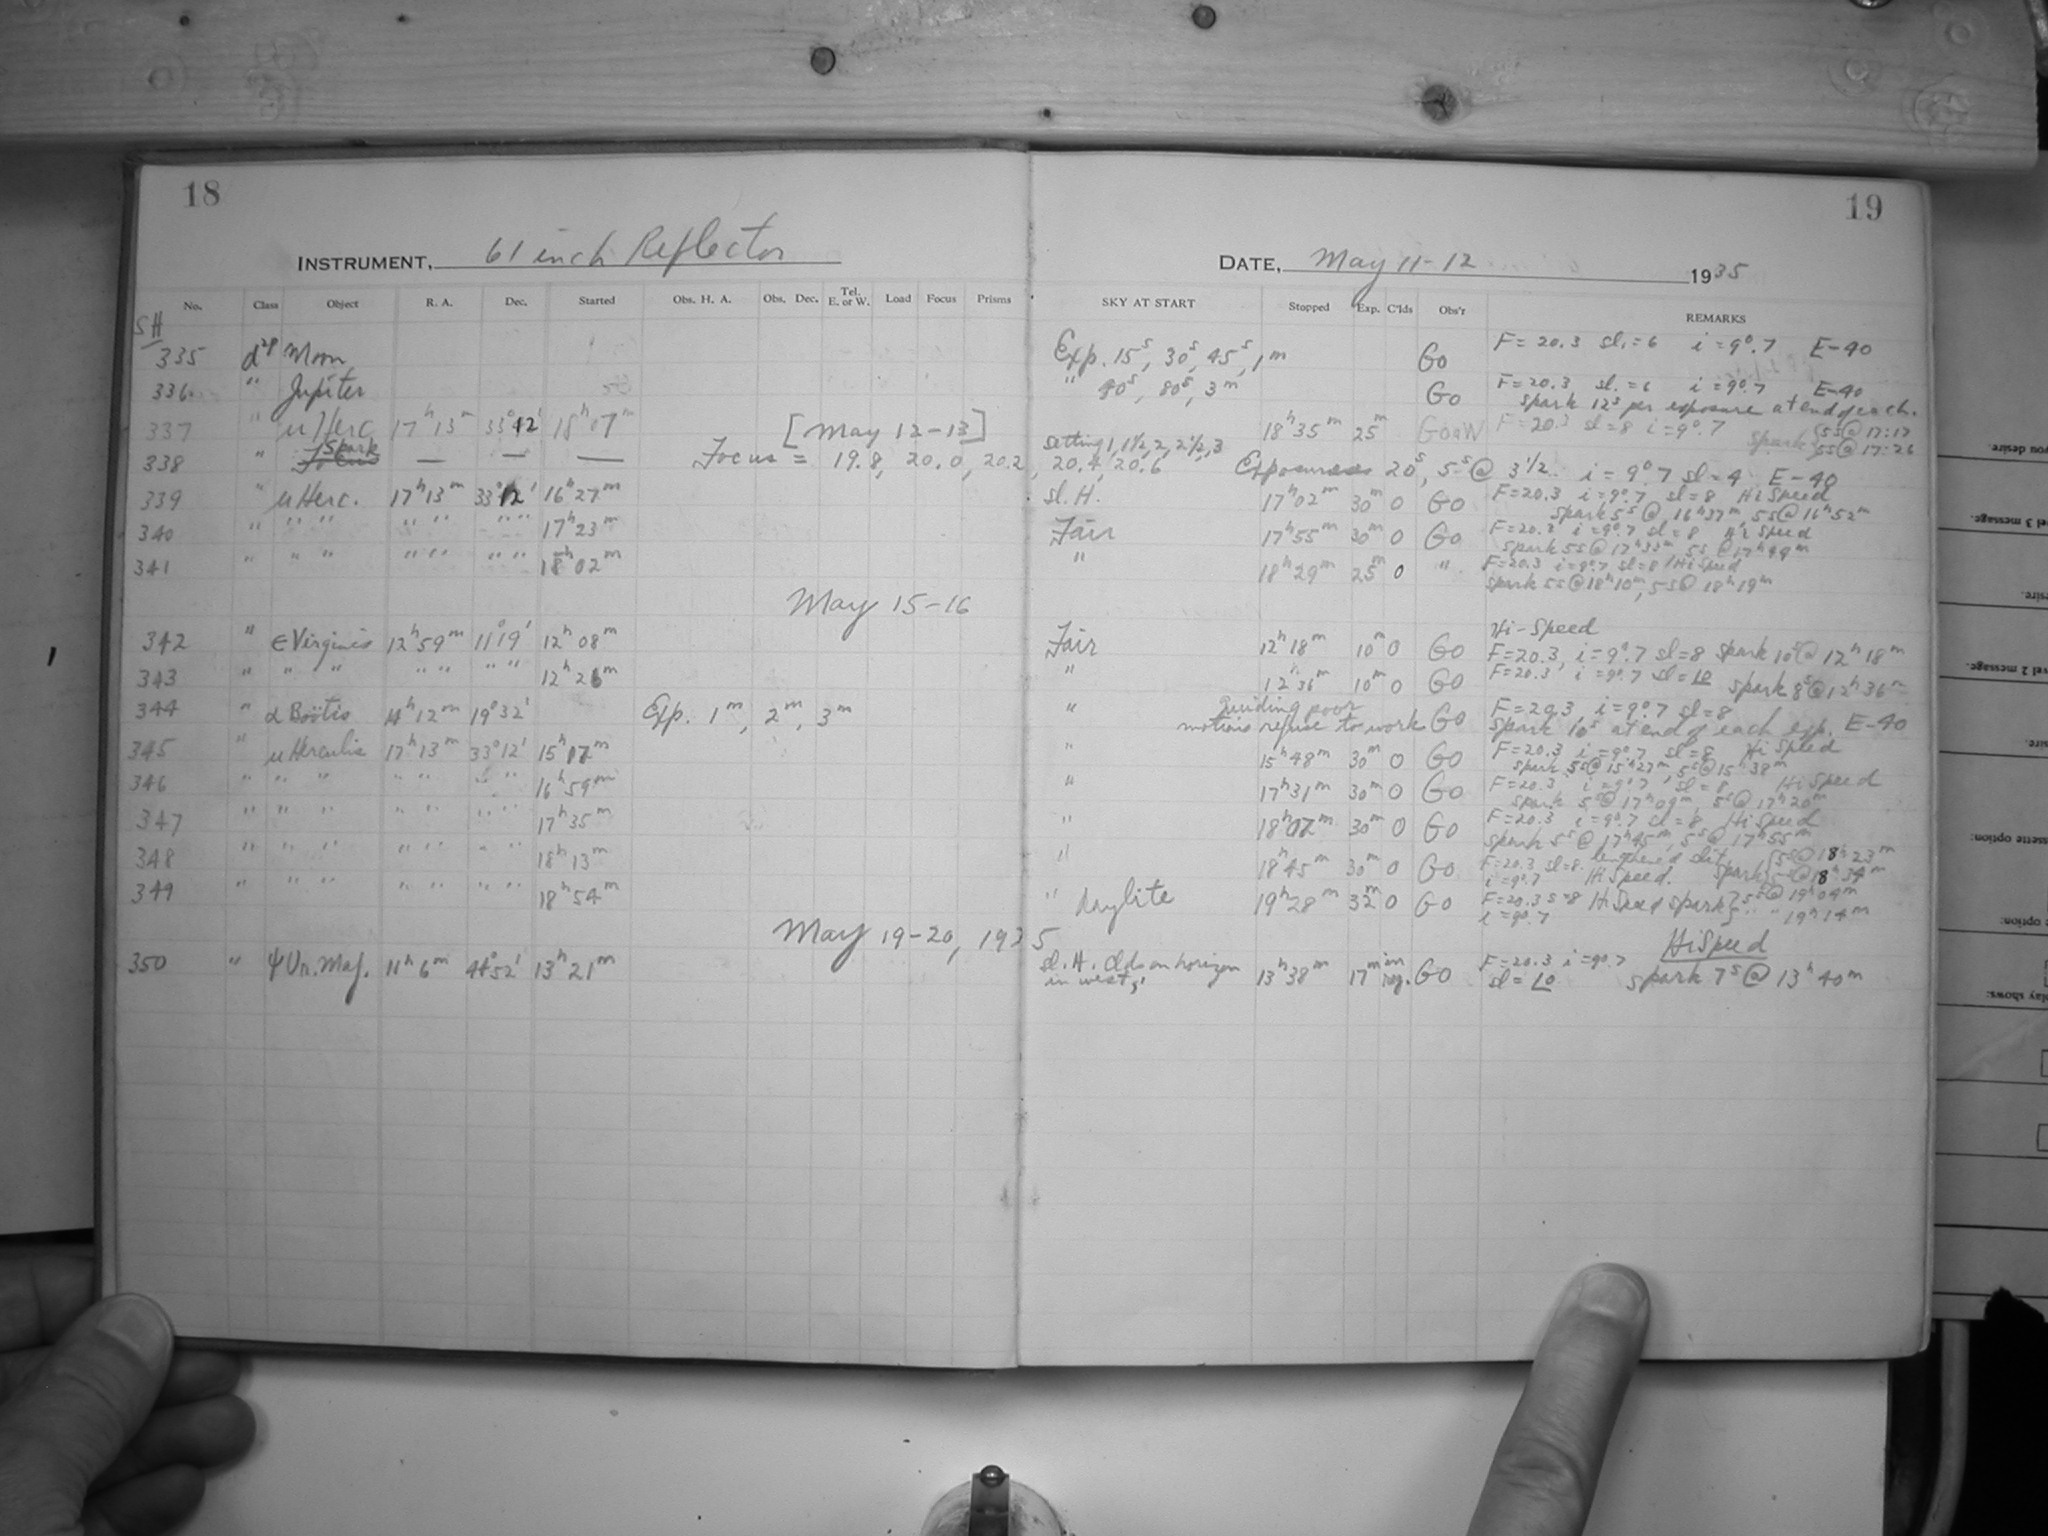 18
19
INSTRUMENT, 61 inch Reflector
DATE, May 11-12 1935
No. Class Object R. A. Dec. Started Obs. H. A. Obs. Dec. Tel. E. or W. Load Focus Prisms SKY AT START Stopped Exp. C'lds Obs'r REMARKS
SH
335 Moon Exp. 15s, 30s, 45s, 1m Go F = 20.3 sl. = 6 i = 9°.7 E-40
336 " Jupiter " 40s, 80s, 3m Go F = 20.3 sl. = 6 i = 9°.7 E-40
spark 12s per exposure at end of each.
[May 12-13]
337 " μ Herc 17h 13m 33°12' 18h 07m 18h 35m 25m F = 20.3 sl = 8 i = 9°.7 spark 5s @ 17:17
5s @ 17:26
setting 1, 1½, 2, 2½, 3
338 " Spark — — — Focus = 19.8, 20.0, 20.2, 20.4, 20.6 Exposures 20s, 5s @ 3½ i = 9°.7 sl = 4 E-40
339 " μ Herc. 17h 13m 33°12' 16h 27m sl. H. 17h 02m 30m 0 Go F = 20.3 i = 9°.7 sl = 8 Hi Speed
spark 5s @ 16h 37m 5s @ 16h 52m
340 " " " " " " " 17h 23m Fair 17h 55m 30m 0 Go F = 20.3 i = 9°.7 sl = 8 Hi Speed
spark 5s @ 17h 33m 5s @ 17h 44m
341 " " " " " " " 18h 02m " 18h 29m 25m 0 " F = 20.3 i = 9°.7 sl = 8 Hi Speed
spark 5s @ 18h 10m, 5s @ 18h 19m
May 15-16
342 " ε Virginis 12h 59m 11°19' 12h 08m Fair 12h 18m 10m 0 Go Hi-Speed
F = 20.3, i = 9°.7 sl = 8 spark 10s @ 12h 18m
343 " " " " " " " " 12h 26m " 12h 36m 10m 0 Go F = 20.3 i = 9°.7 sl = 10 spark 8s @ 12h 36m
344 " α Boötis 14h 12m 19°32' Exp. 1m, 2m, 3m " guiding poor
motions refuse to work Go F = 20.3 i = 9°.7 sl = 8
spark 10s at end of each exp. E-40
345 " μ Herculis 17h 13m 33°12' 15h 17m " 15h 48m 30m 0 Go F = 20.3 i = 9°.7 sl = 8 Hi Speed
spark 5s @ 15h 27m, 5s @ 15h 38m
346 " " " " " " " " 16h 59m " 17h 31m 30m 0 Go F = 20.3 i = 9°.7 sl = 8 Hi Speed
spark 5s @ 17h 09m, 5s @ 17h 20m
347 " " " " " " " " 17h 35m " 18h 07m 30m 0 Go F = 20.3 i = 9°.7 sl = 8 Hi Speed
spark 5s @ 17h 45m, 5s @ 17h 55m
348 " " " " " " " " 18h 13m " 18h 45m 30m 0 Go F = 20.3 sl = 8. lengthened slit spark 5s @ 18h 23m
i = 9°.7 Hi Speed. 5s @ 18h 34m
349 " " " " " " " " 18h 54m " Daylite 19h 28m 32m 0 Go F = 20.3 s = 8 Hi Speed spark 5s @ 19h 04m
i = 9°.7 " " 19h 14m
May 19-20, 1935
350 " ψ Ur. Maj. 11h 6m 44°52' 13h 21m sl. H. Clds on horizon
in west 13h 38m 17m Go F = 20.3 i = 9°.7 Hi Speed
sl = 10 spark 7s @ 13h 40m
you desire.
vel 3 message.
esire.
vel 2 message.
sire.
ssette option:
e option:
play shows: